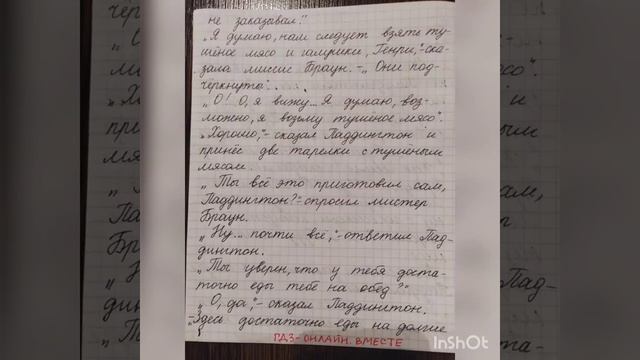 не заказывал!"
„Я думаю, нам следует взять ту-
шёное мясо и гамрики, Генри,"-ска-
зала миссис Браун. -„Они под-
чёркнуты".
„О! О, я вижу... Я думаю, воз-
можно, я возьму тушёное мясо".
„Хорошо,"- сказал Паддингтон и
принёс две тарелки с тушёным
мясом.
„Ты всё это приготовил сам,
Паддингтон?"- спросил мистер
Браун.
„Ну... почти всё,"- ответил Пад-
дингтон.
„Ты уверен, что у тебя доста-
точно еды тебе на обед?"
„О, да,"- сказал Паддингтон.
-„Здесь достаточно еды на долгие
ГДЗ-ОНЛАЙН. ВМЕСТЕ
InShOt